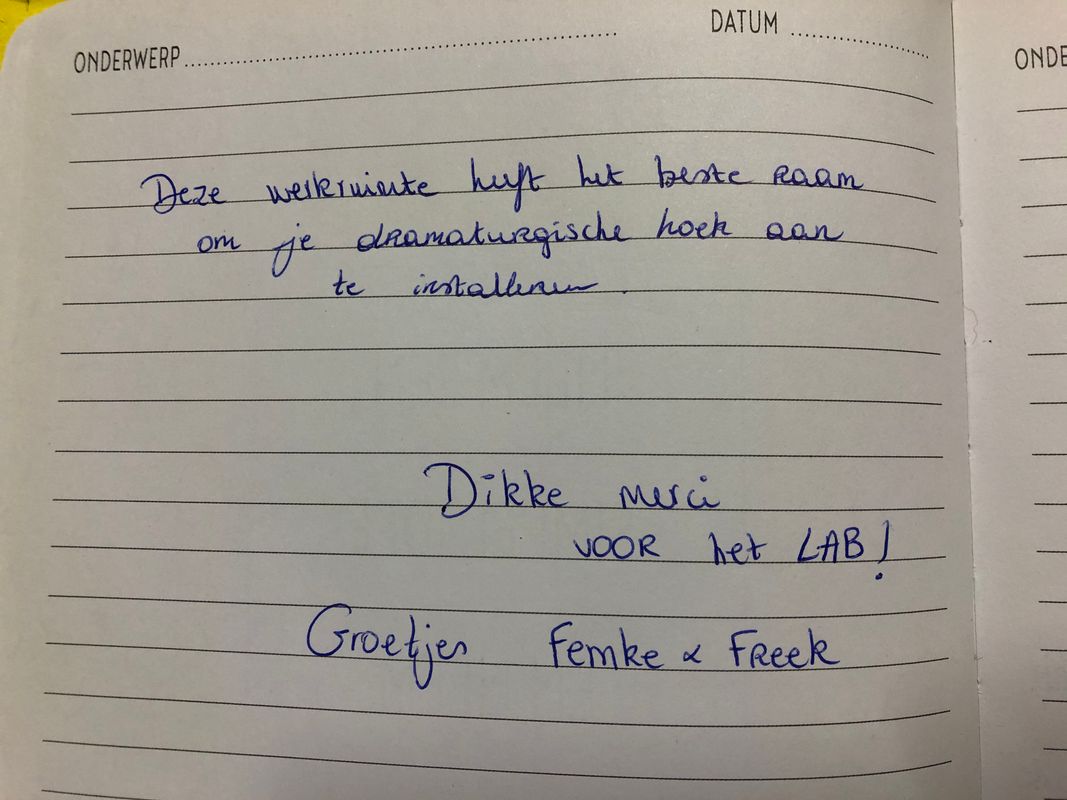 ONDERWERP DATUM
Deze werkruimte heeft het beste raam
om je dramaturgische hoek aan
te installeren.
Dikke merci
VOOR het LAB!
Groetjes Femke & Freek
ONDE